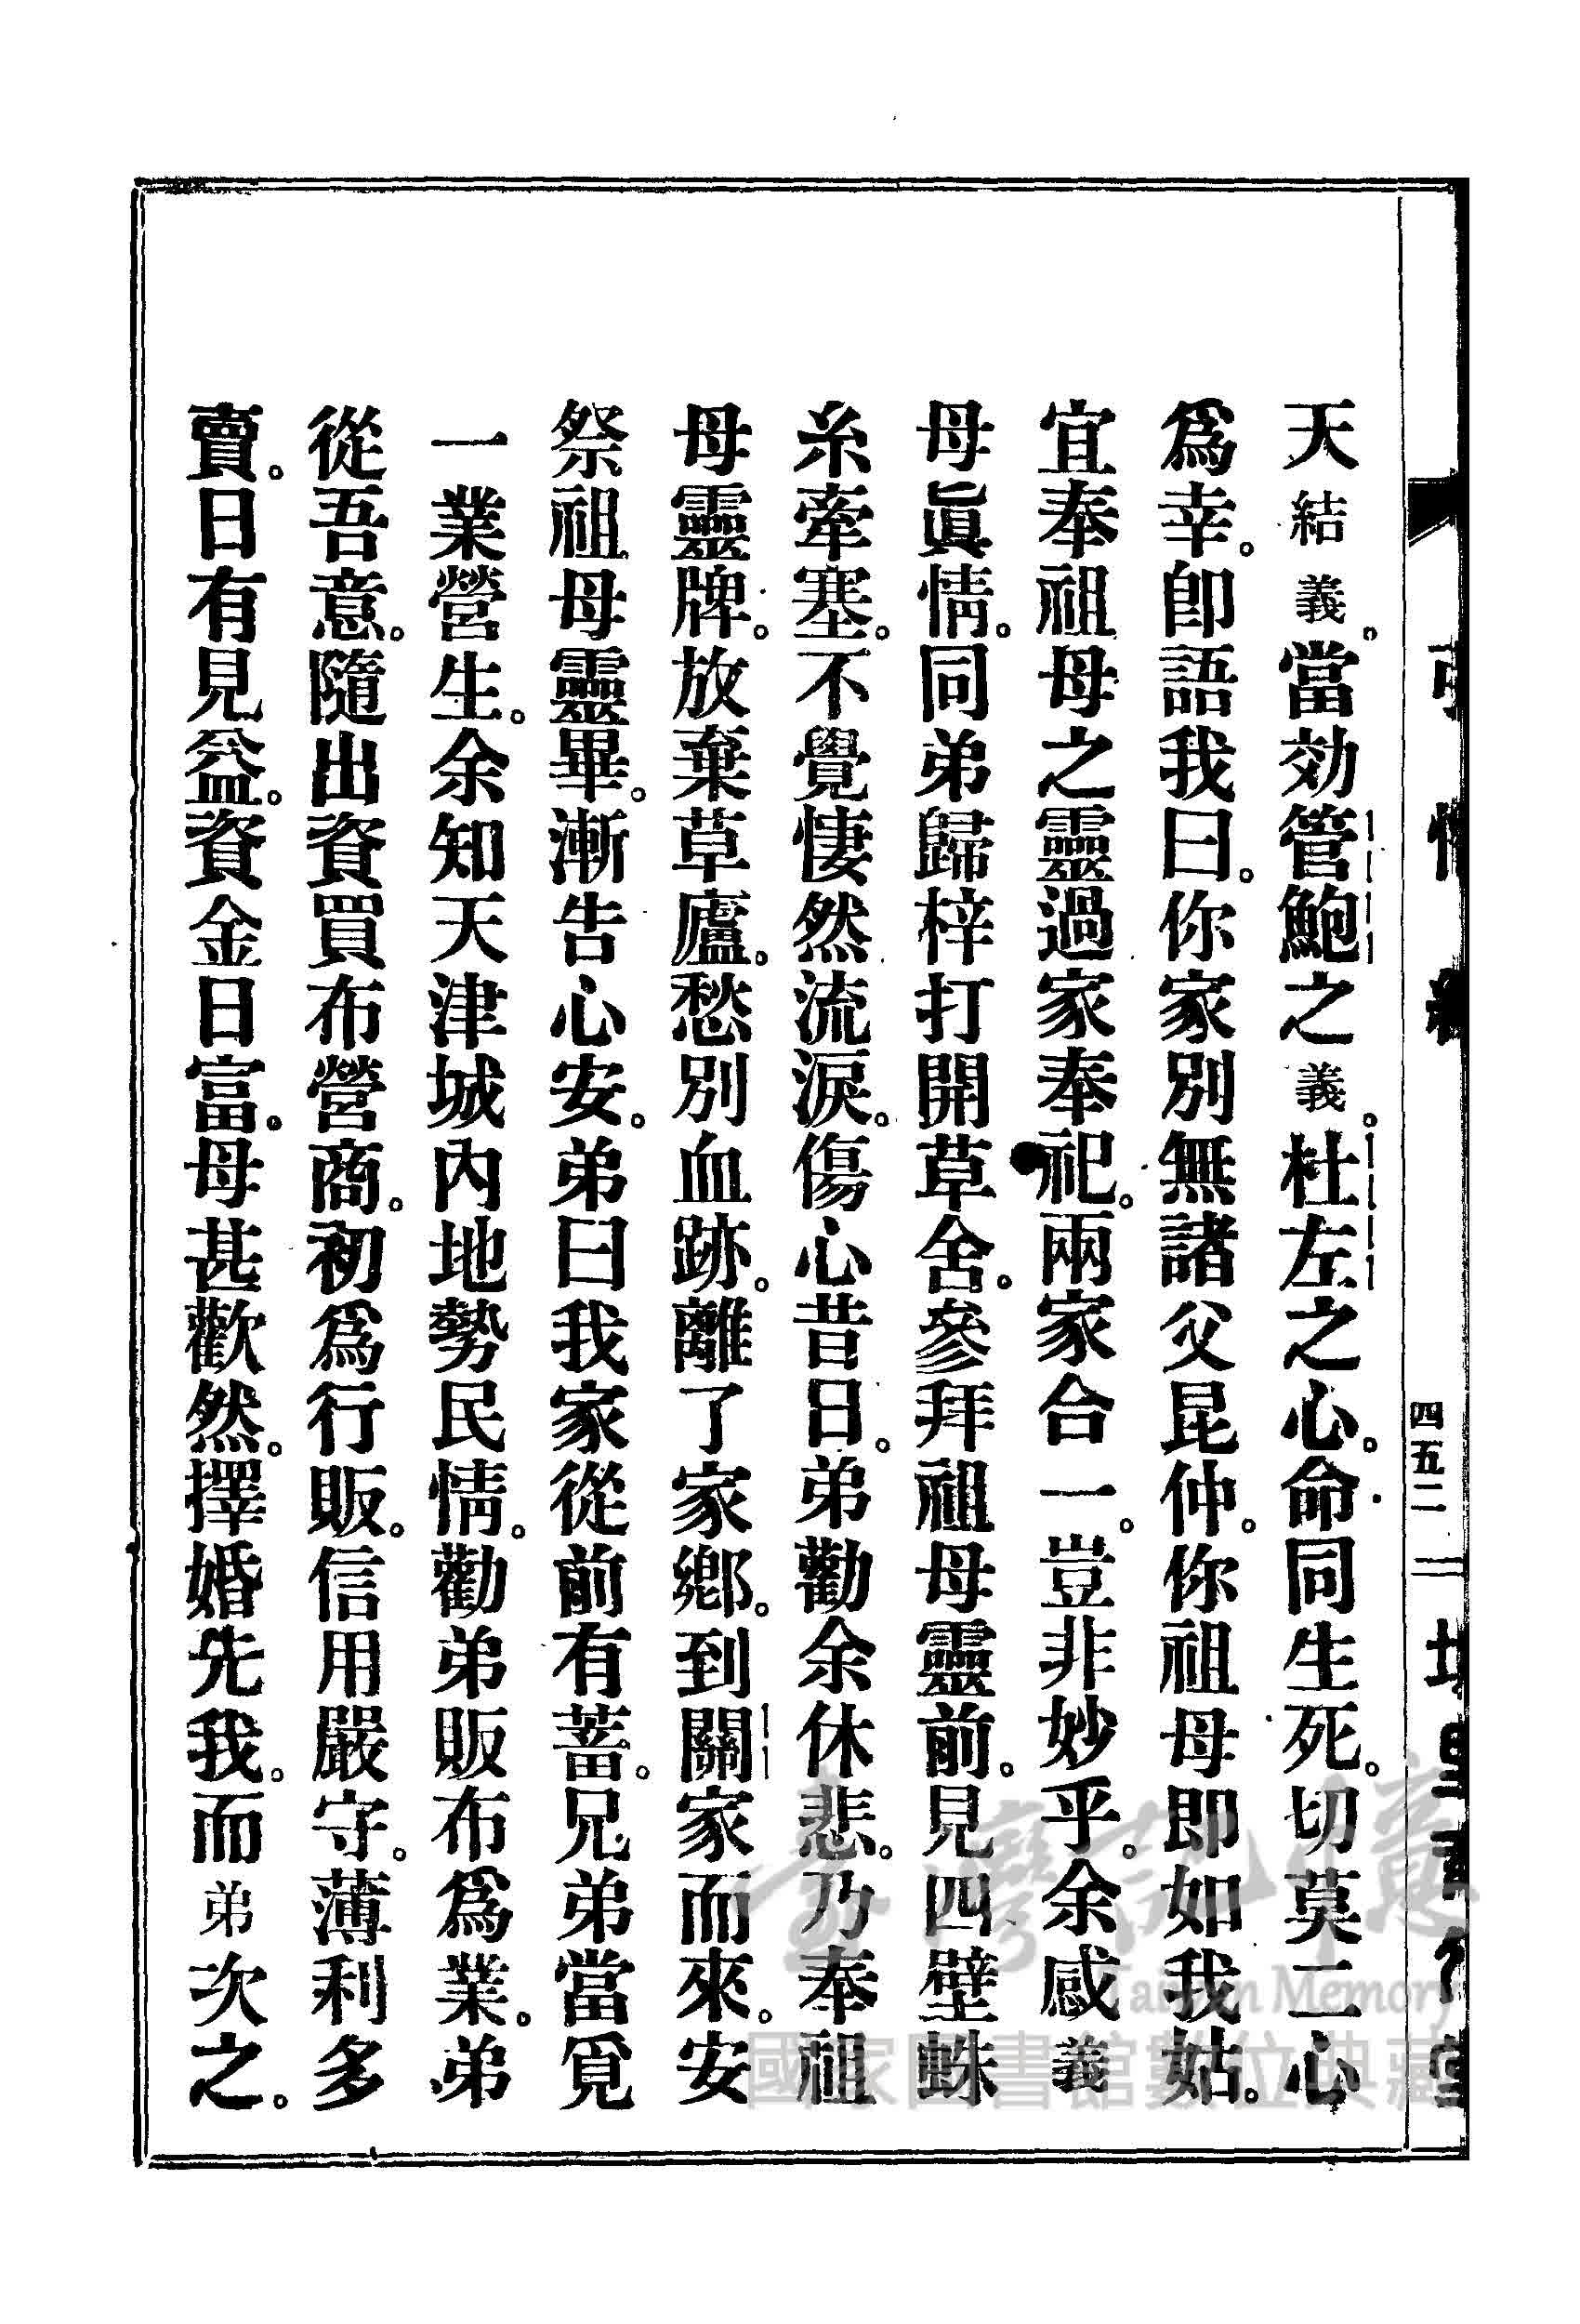 天結義。當効管鮑之義。杜左之心。命同生死。切莫二心
爲幸。卽語我曰。你家別無諸父昆仲。你祖母即如我姑。
宜奉祖母之靈過家奉祀。兩家合一。豈非妙乎。余感義
母眞情。同弟歸梓打開草舍。參拜祖母靈前。見四壁蛛
糸牽塞。不覺悽然流淚。傷心昔日。弟勸余休悲。乃奉祖
母靈牌。放棄草廬。愁別血跡。離了家鄉。到關家而來。安
祭祖母靈畢。漸告心安。弟曰我家從前有蓄。兄弟當覓
一業營生。余知天津城內地勢民情。勸弟販布爲業。弟
從吾意。隨出資買布營商。初爲行販。信用嚴守。薄利多
賣。日有見益。資金日富。母甚歡然。擇婚先我。而弟次之。
四五二
臺灣記憶
Taiwan Memory
國家圖書館數位典藏